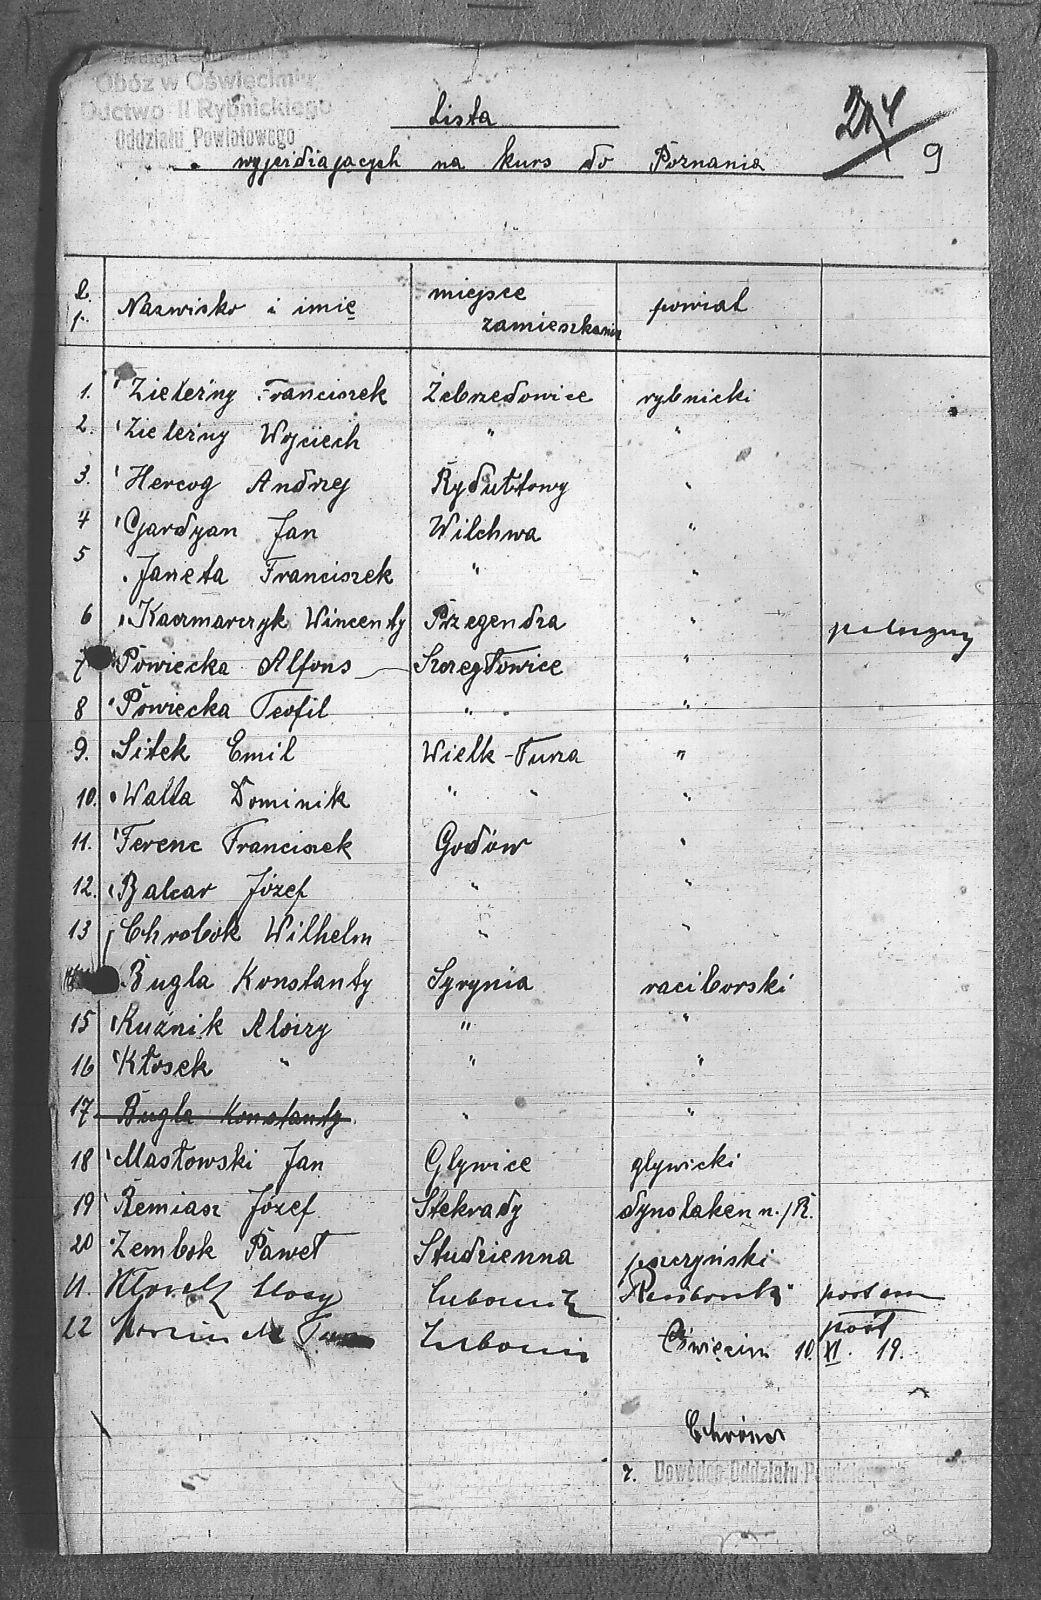 Obóz w Oświęcimiu,
Ductwo II Rybnickiego
Oddziału Powiatowego
Lista
wyjerdiających na kurs do Poznania
9
L. Nazwisko i imię miejsce powiat
p. zamieszkania
1. Zieleźny Franciszek Zebrzedowice rybnicki
2. Zieleźny Wojciech " "
3. Hercog Andrzej Rydułtowy "
4 Gardyan Jan Wilchwa "
5 Janeta Franciszek " "
6 Kaczmarczyk Wincenty Przegendza "
7 Powiecka Alfons Szczegłowice "
8 Powiecka Teofil " "
9. Sitek Emil Wielk-Turza "
10. Walla Dominik " " "
11. Ferenc Franciszek Godów "
12. Balcar Józef " "
13 Chrobok Wilhelm " "
Bugla Konstanty Syrynia raciborski
15 Kuźnik Alojzy " "
16 Kłosek " " "
17 Bugla Konstanty " "
18 Masłowski Jan Glywice glywicki
19 Remiasz Józef Stekrady dynslaken n./R.
20 Zembok Paweł Studzienna pszczyński
21.
22
Oświęcim 10. XI. 19.
Dowódca Oddziału